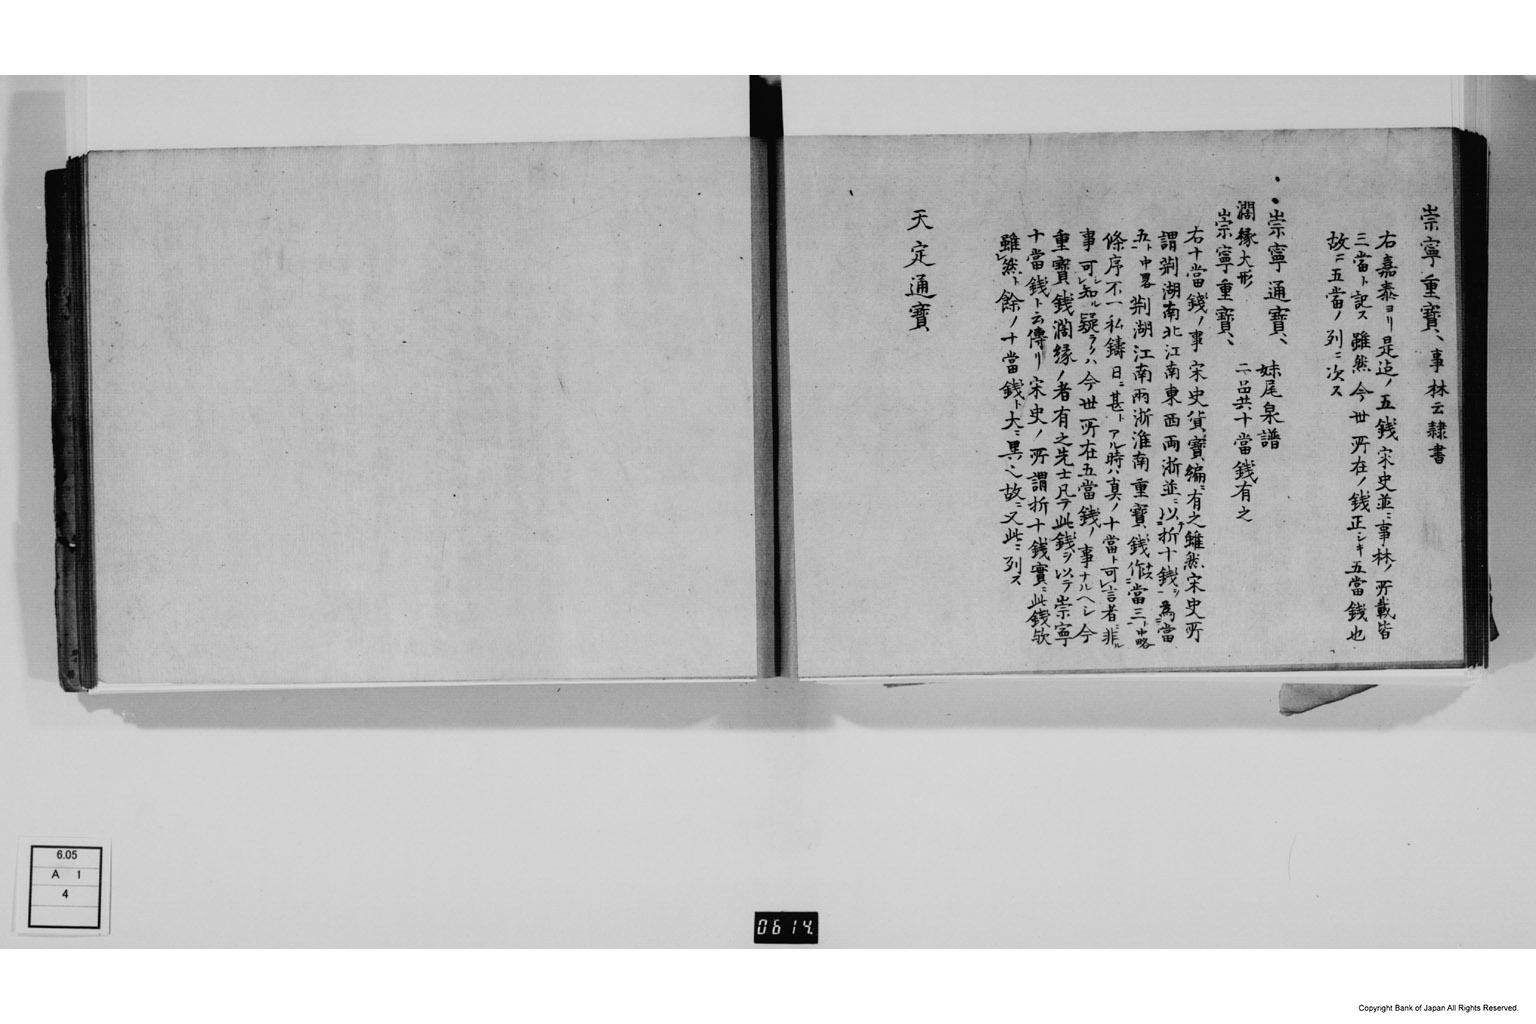 崇寧重寳、事林云隷書
右嘉泰ヨリ是迠ノ五銭宋史並ニ事林ノ所載皆
三當ト記ス雖然今世所在ノ銭正シキ五當銭也
故ニ五當ノ列ニ次ス
崇寧通寳、妹尾泉譜
濶縁大形
崇寧重寳、二品共十當銭有之
右十當錢ノ事宋史貨寳編ニ有之雖然宋史所
謂荊湖南北江南東西両浙並ニ以折十銭ヲ為當
五ト中畧荊湖江南両浙淮南重寳銭作ス當三ト中略
條序不一私鋳日ニ甚トアル時ハ真ノ十當ト可言者ニ非ル
事可知ル疑ラクハ今世所在五當銭ノ事ナルヘシ今
重寳銭濶縁ノ者有之先士凡テ此銭ヲ以テ崇寧
十當銭ト云傳リ宋史ノ所謂折十銭實ニ此銭欤
雖然ト餘ノ十當銭ト大ニ異之故ニ又此ニ列ス
天定通寳
6.05
A 1
4
0614.
Copyright Bank of Japan All Rights Reserved.